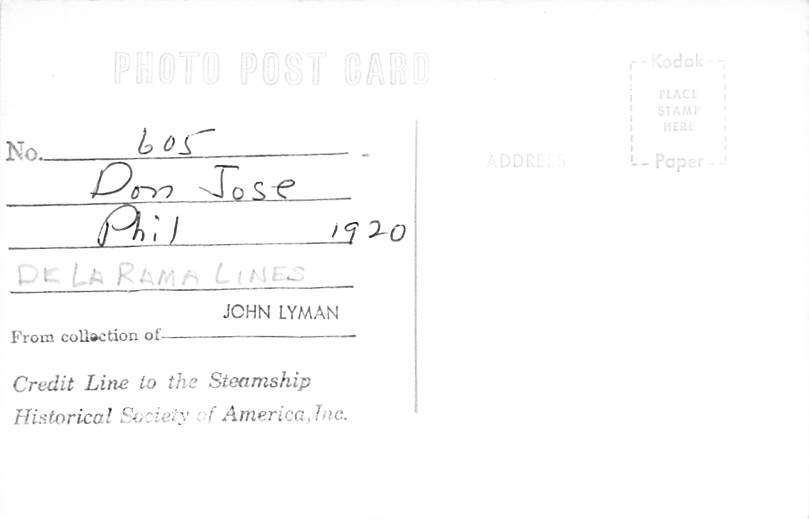 PHOTO POST CARD
No. 605
Don Jose
Phil 1920
DE LA RAMA LINES
JOHN LYMAN
From collection of
Credit Line to the Steamship
Historical Society of America, Inc.
ADDRESS
Kodak
PLACE
STAMP
HERE
Paper